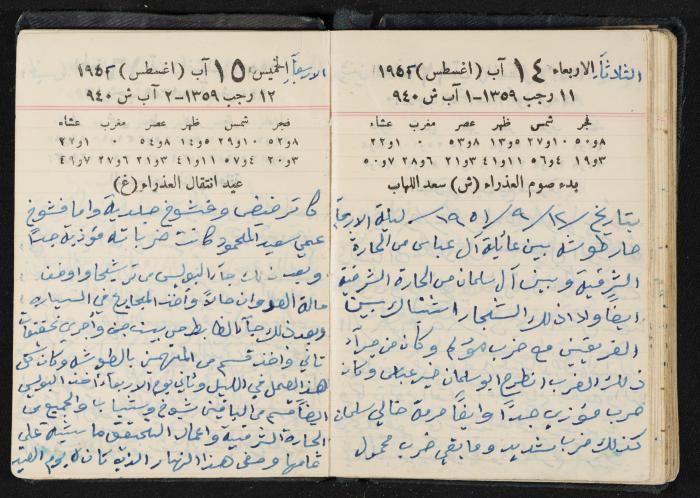 الثلاثاء الاربعاء ١٤ آب (اغسطس) ١٩٥٢
١١ رجب ١٣٥٩-١ آب ش ٩٤٠
فجر شمس ظهر عصر مغرب عشاء
٨و٥٠ ١٠و٢٧ ٥و١٣ ٨و٥٣ ٠ ١و٢٢
٣و١٩ ٤و٥٦ ١١و٤١ ٣و٢١ ٦و٢٨ ٧و٥٠
بدء صوم العذراء (ش) سعد اللهاب
بتاريخ ١٢/٩/١٩٥١ ليلة الاربعاء
صار طوشه بين عائلة آل عباس من الحارة
الشرقية وبين آل سلمان من الحارة الشرقية
ايضاً واذ ذلك الشجار اشتباك بين
الفريقين مع ضرب مؤلم وكان من جراء
ذلك الضرب انطرح ابو سلمان عباس وكان
ضرب مؤذي جداً وايضاً حرمة خالي سلمان
كذلك ضرب شديد وما بقي ضرب محمول
الاربعاء الخميس ١٥ آب (اغسطس) ١٩٥٢
١٢ رجب ١٣٥٩-٢ آب ش ٩٤٠
فجر شمس ظهر عصر مغرب عشاء
٨و٥٢ ١٠و٢٩ ٥و١٤ ٨و٥٤ ٠ ١و٢٢
٣و٢٠ ٤و٥٧ ١١و٤١ ٣و٢١ ٦و٢٧ ٧و٤٩
عيد انتقال العذراء (غ)
وفشوخ جلدية واما فشوخ
عمي سعيد المحمود كانت ضرباته مؤذية جداً
وبعد ذلك جاء البوليس من ترشيحا واوقف
حالة العدوان حالاً واخذ المجاريح في السياره
وبعد ذلك جاء الظابط من بيت واجرى تحقيقاً
ثاني واخذ قسم من المتهمين بالطوشه وكان كل
هذا العمل في الليل وثاني يوم الاربعاء اخذ البوليس
ايضاً قسم من الباقين شيوخ وشباب والجميع من
الحارة الشرقية واعمال التحقيق ماشيه على
تمامها ومضى هذا النهار الذي كان يوم العيد